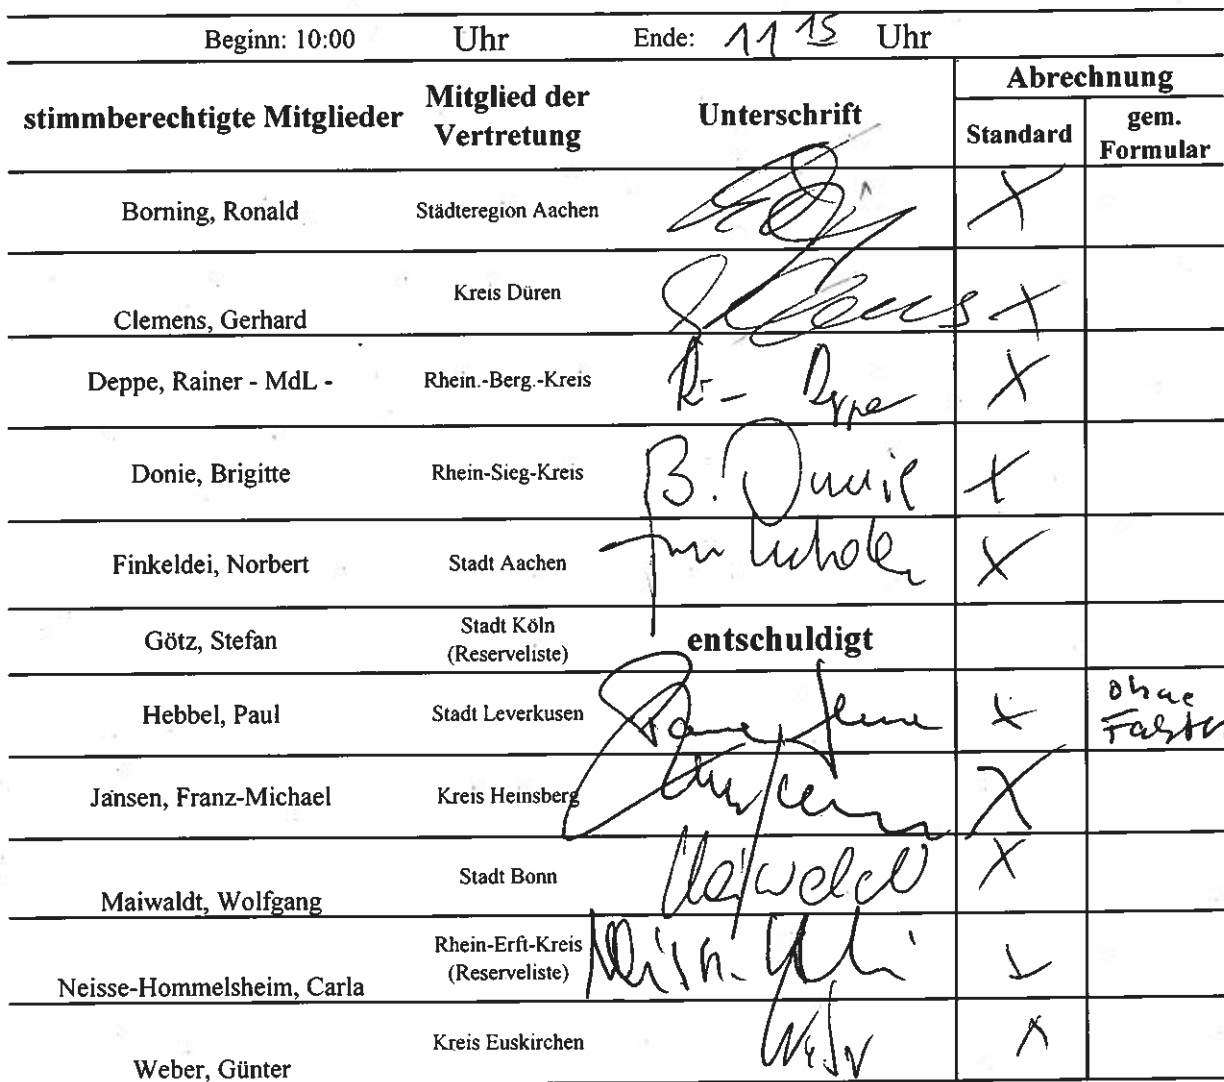 Beginn: 10:00 Uhr Ende: 11 15 Uhr
Abrechnung
stimmberechtigte Mitglieder Mitglied der Vertretung Unterschrift Standard gem. Formular
Borning, Ronald Städteregion Aachen X
Clemens, Gerhard Kreis Düren Clemens X
Deppe, Rainer - MdL - Rhein.-Berg.-Kreis Deppe X
Donie, Brigitte Rhein-Sieg-Kreis B. Donie X
Finkeldei, Norbert Stadt Aachen X
Götz, Stefan Stadt Köln (Reserveliste) entschuldigt
Hebbel, Paul Stadt Leverkusen X ohne
Jansen, Franz-Michael Kreis Heinsberg X
Maiwaldt, Wolfgang Stadt Bonn Maiwaldt X
Neisse-Hommelsheim, Carla Rhein-Erft-Kreis (Reserveliste)
Weber, Günter Kreis Euskirchen X